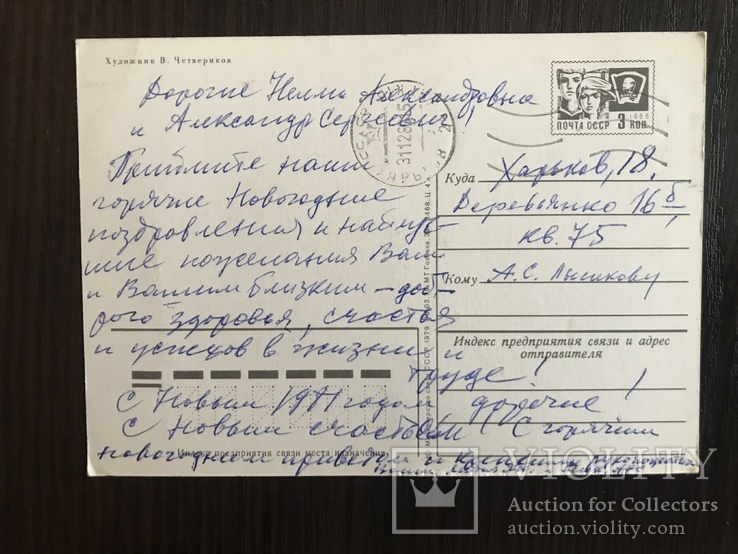 Художник В. Четвериков
Дорогие Нелли Александровна
и Александр Сергеевич,
Примите наши
горячие Новогодние
поздравления и наилуч
шие пожелания Вам
и Вашим близким – доб-
рого здоровья, счастья
и успехов в жизни и
труде!
С Новым 1981 годом дорогие!
С Новым счастьем! С горячим
новогодним приветом и
ПОЧТА СССР 3 КОП.
1966
311280
Куда Харьков, 18.
Деревянко 16б,
кв. 75
Кому А.С. Лысикову
Индекс предприятия связи и адрес
отправителя
Индекс предприятия связи места назначения
СССР. 1979
VIOLITY
Auction for Collectors
auction.violity.com